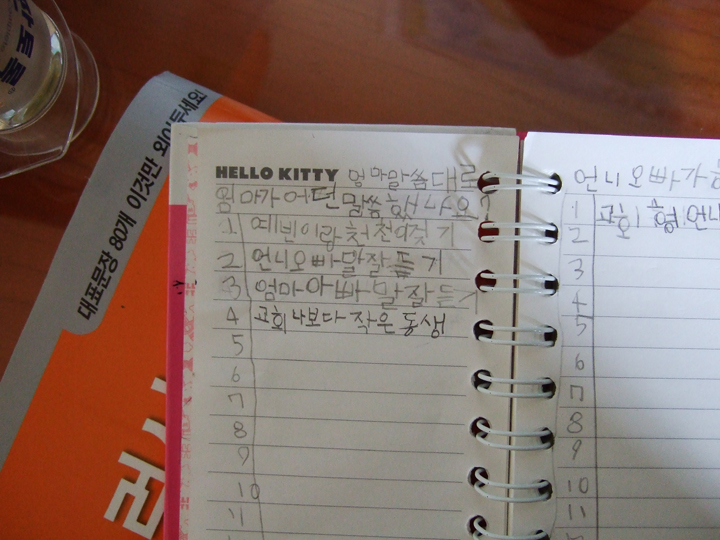 만토물
대표문장 80개 이것만 외아두세요!
HELLO KITTY 엄마말씀대로
엄마가 어떤 말씀 했나요
1 예빈이랑 천천이 걷기
2 언니오빠말잘 듣기
3 엄마아빠말잘 듣기
4 교회 나보다 작은 동생
5
6
7
8
9
10
11
언니오빠가
1 교회
2
3
4
5
6
7
8
9
10
11